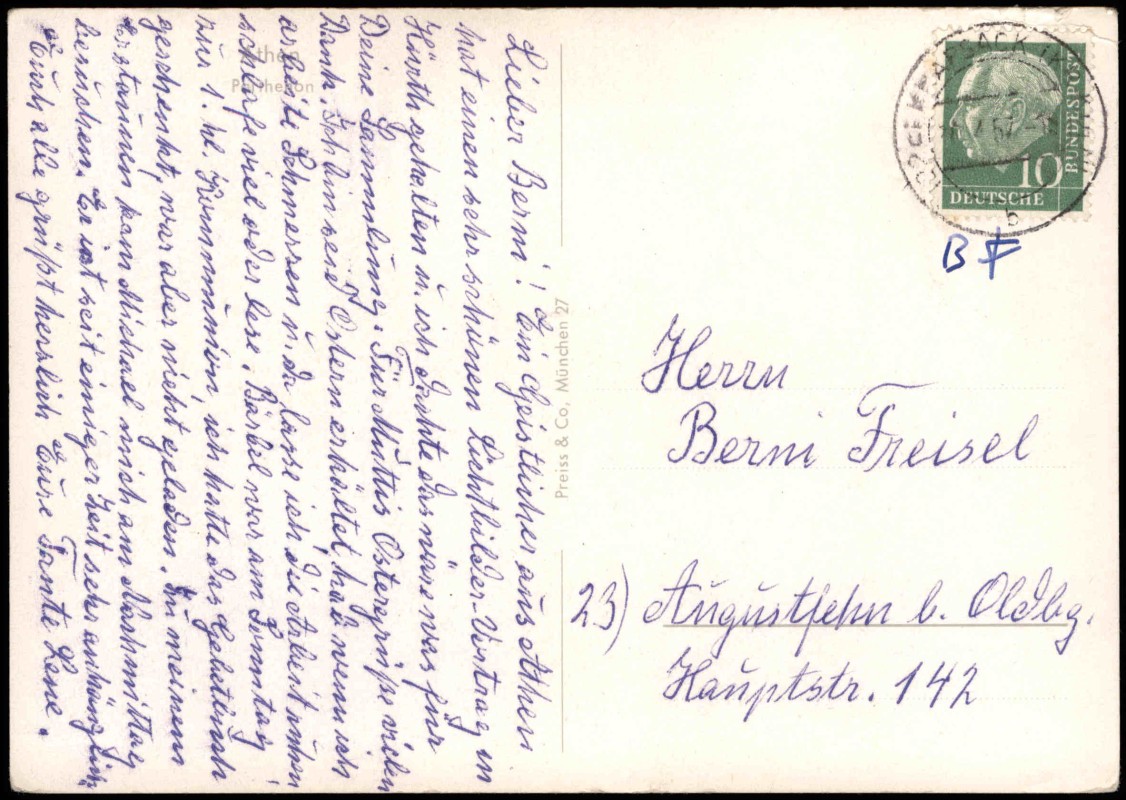 Lieber Berni! Ein Geistlicher aus Athen
hat einen sehr schönen Lichtbilder-Vortrag in
Hürth gehalten u. ich dachte das wäre was für
Deine Sammlung. Für Muttis Ostergrüße vielen
Dank. Ich bin seid Ostern erkältet, hab wenn ich
arbeite Schmerzen u. da lasse ich die Arbeit ruhen
schlafe viel oder lese. Bärbel war am Sonntag
zur 1. hl. Kommunion, ich hatte das Gebetbuch
geschenkt, war aber nicht geladen. Zu meinem
Erstaunen kam Michael mich am Nachmittag
besuchen. Er ist seit einiger Zeit sehr anhänglich
Euch alle grüßt herzlich Eure Tante Lene.
Athen
Parthenon
Preiss & Co, München 27
DEUTSCHE
BUNDESPOST
10
b
BF
Herrn
Berni Freisel
23) Augustfehn b. Oldbg.
Hauptstr. 142